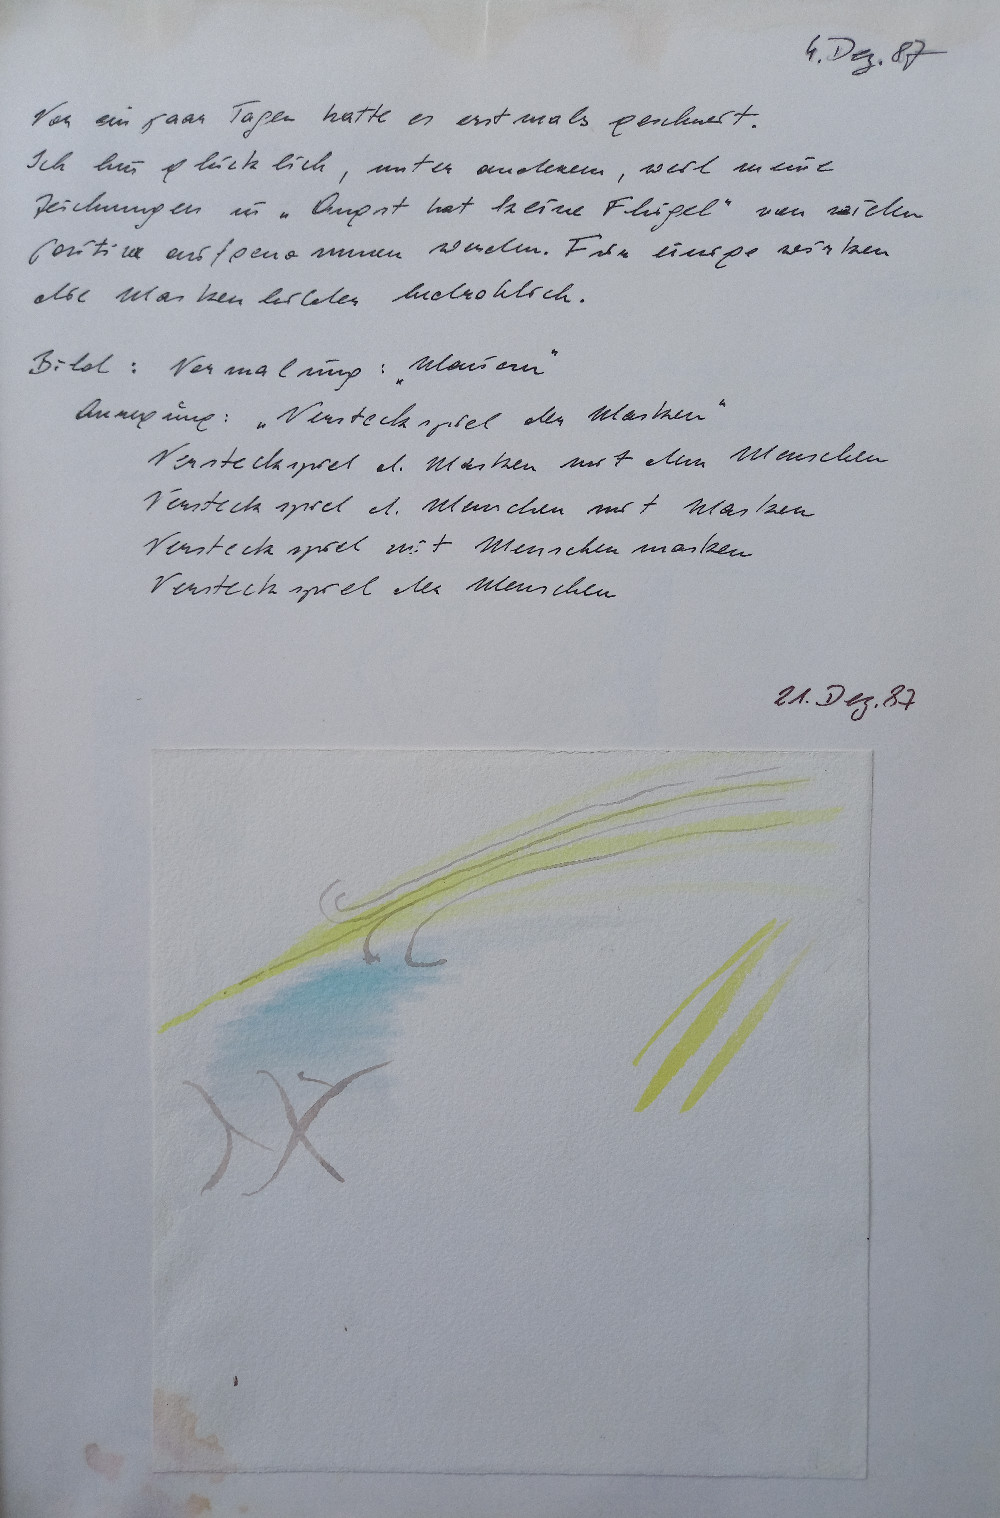 4. Dez. 87
Vor ein paar Tagen hatte es erstmals geschneit.
Ich bin glücklich, unter anderem, weil meine
Zeichnungen in „Angst hat keine Flügel" von vielen
positiv aufgenommen werden. Für einige wirken
die Maskenbilder bedrohlich.
Bild: Vermalung: „Mauern"
Anregung: „Versteckspiel der Masken"
Versteckspiel d. Masken mit dem Menschen
Versteckspiel d. Menschen mit Masken
Versteckspiel mit Menschenmasken
Versteckspiel der Menschen
21. Dez. 87